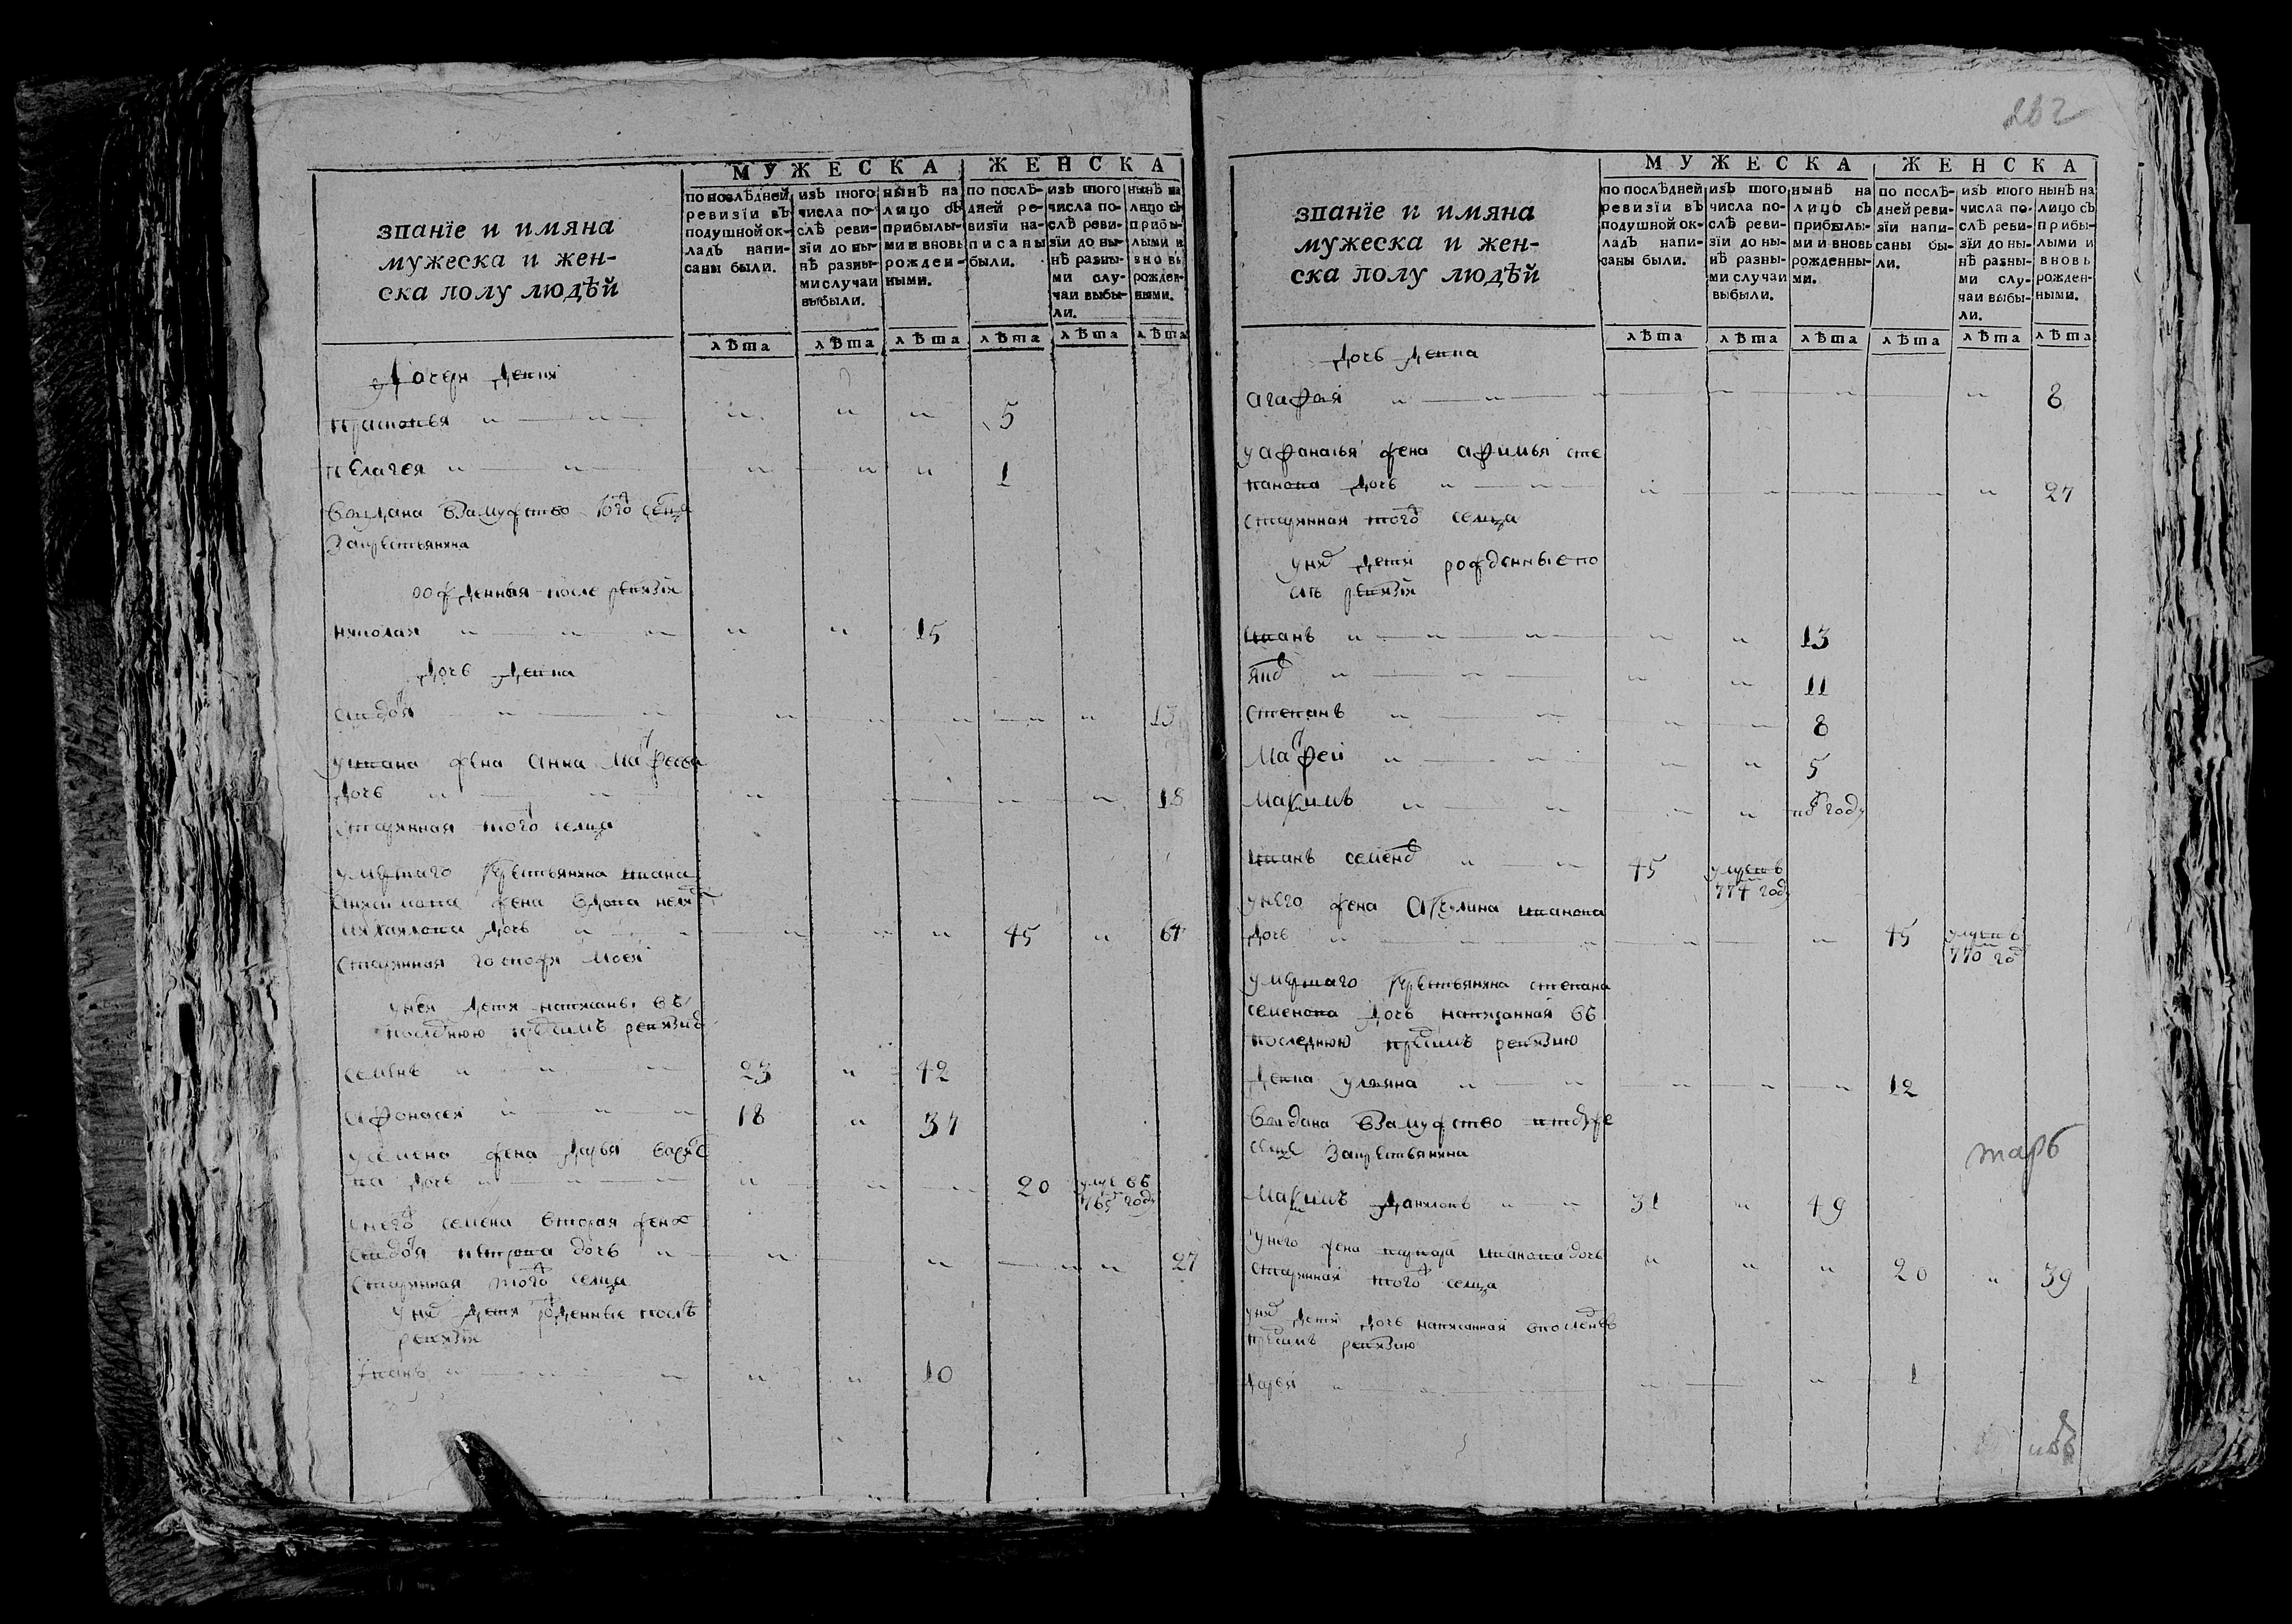 МУЖЕСКА ЖЕНСКА
званїе и имяна
мужеска и жен-
ска полу людѣй
по послѣдней
ревизїи въ
подушной ок-
ладъ напи-
саны были.
изъ того
числа по-
слѣ реви-
зїи до ны-
нѣ разны-
ми случаи
выбыли.
нынѣ на
лицо съ
прибылы-
ми и вновь
рожден-
ными.
по послѣ-
дней ре-
визїи на-
писаны
были.
изъ того
числа по-
слѣ реви-
зїи до ны-
нѣ разны-
ми слу-
чаи выбы-
ли.
нынѣ на
лицо съ
прибы-
лыми и
вновь
рожден-
ными.
лѣта лѣта лѣта лѣта лѣта лѣта
Дочери девки
прасковья 5
пелагея 1
выдана взамужство того селца
закрестьянина
рожденная после ревизїи
николай 15
дочь девка
авдотя 13
уивана жена анна матфеева
дочь 18
старинная того селца
умершаго крестьянина ивана
жена вдова
дочь 45 64
старинная госпожи моей
унея дети написаны въ
последнюю пред симъ ревизию
семенъ 23 42
афонасей 18 37
усемена жена дарья
дочь 20 умре въ
765 году
унего семена вторая жена
авдотя петрова дочь 27
старинная того селца
у них дети рожденные послѣ
ревизїи
иванъ 10
262
МУЖЕСКА ЖЕНСКА
званїе и имяна
мужеска и жен-
ска полу людѣй
по послѣдней
ревизїи въ
подушной ок-
ладъ напи-
саны были.
изъ того
числа по-
слѣ реви-
зїи до ны-
нѣ разны-
ми случаи
выбыли.
нынѣ на
лицо съ
прибылы-
ми и вновь
рожденны-
ми.
по послѣ-
дней реви-
зїи напи-
саны бы-
ли.
изъ того
числа по-
слѣ реви-
зїи до ны-
нѣ разны-
ми слу-
чаи выбы-
ли.
нынѣ на
лицо съ
прибы-
лыми и
вновь
рожден-
ными.
лѣта лѣта лѣта лѣта лѣта лѣта
Дочь девка
агафья 8
уафанасья жена афимья сте
панова дочь 27
старинная того селца
у них дети рожденные по
слѣ ревизїи
иванъ 13
яков 11
степанъ 8
матфей 5
максимъ году
иванъ семенов 45 умре в
774 году
унего жена акулина иванова
дочь 45 умре в
770 год
умершаго крестьянина степана
семенова дочь написанная въ
последнюю пред симъ ревизию
девка ульяна 12
выдана взамужство втомже
селце закрестьянина
тарь
максимъ данилов 31 49
унего жена иванова дочь 20 39
старинная того селца
у них дети дочь написанная впоследнюю
пред симъ ревизию
дарья 1